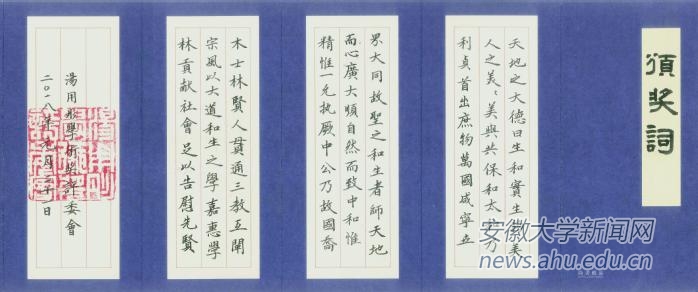 頒奖詞
天地之大德曰生和實生物美
人之美美與共保和太和乃
利貞首出庶物萬國咸寧
界大同故聖之和生者師天地
而心廣大順自然而致中和惟
精惟一允执厥中公乃故國喬
木士林賢人貫通三教開
宗風以大道和生之學嘉惠學
林貢献社會足以告慰先賢
湯用彤學術奖評委會
二〇一八年元月二十日
安徽大学新闻网
news.ahu.edu.cn